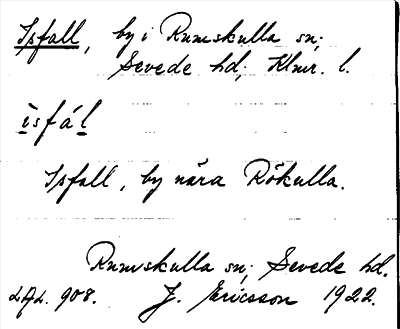 Isfall, by i Rumskulla sn;
Sevede hd; Klmr. l.
ìsfál
Isfall, by nära Rökulla.
Rumskulla sn; Sevede hd.
LAL. 908. J. Ericsson 1922.